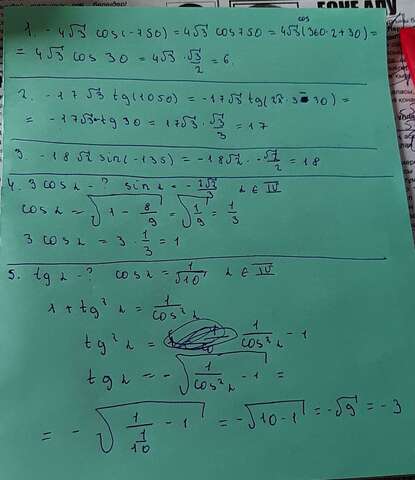 cos
1. - 4√3 cos(-750) = 4√3 cos750 = 4√3 (360·2+30) =
= 4√3 cos 30 = 4√3 · √3/2 = 6.
2. - 17√3 tg(1050) = -17√3 tg(2π·3-30) =
= -17√3·-tg 30 = 17√3 · √3/3 = 17
3. -18√2 sin(-135) = -18√2 · -√2/2 = 18
4. 3 cos α - ? sin α = - 2√2/3 α ∈ IV
cos α = √(1 - 8/9) = √(1/9) = 1/3
3 cos α = 3 · 1/3 = 1
5. tg α - ? cos α = 1/√10 α ∈ IV
1 + tg² α = 1/cos² α
tg² α = 1/cos² α - 1
tg α = - √(1/cos² α - 1) =
= - √(1/(1/10) - 1) = -√(10-1) = -√9 = -3